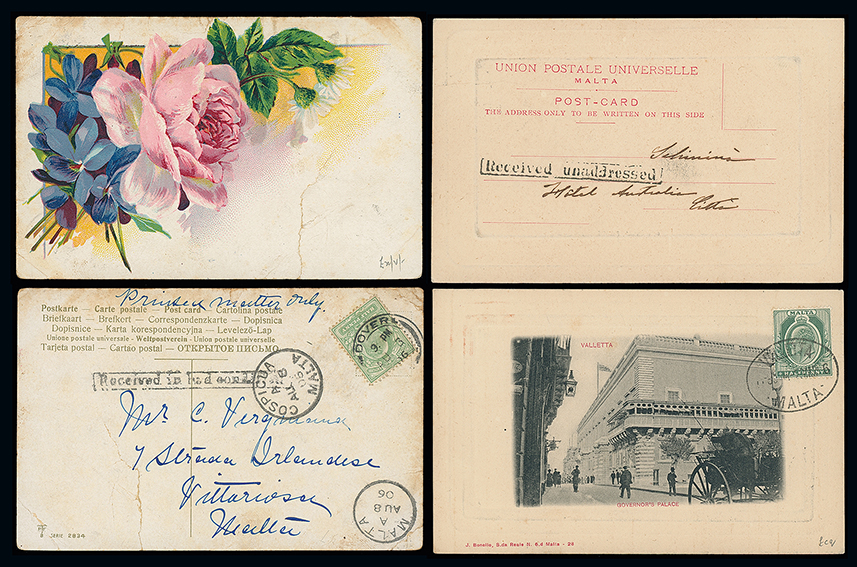 UNION POSTALE UNIVERSELLE
MALTA
POST-CARD
THE ADDRESS ONLY TO BE WRITTEN ON THIS SIDE
Received unaddressed!
Hotel Australia
Città
Printed matter only
Postkarte — Carte postale — Post card — Cartolina postale
Briefkaart — Brefkort — Correspondenzkarte — Dopisnica
Dopisnice — Karta korespondencyjna — Levelező-Lap
Unione postale universale — Weltpostverein — Union postale universelle
Tarjeta postal — Cartão postal — ОТКРЫТОЕ ПИСЬМО
DOVER
Received in bad cond
COSPICUA MALTA
AU 8
06
Mr C.
7 Strada Irlandese
Vittoriosa
Malta
MALTA
A
AU 8
06
SERIE 2834
MALTA
VALLETTA
MALTA
GOVERNOR'S PALACE
J. Bonello, S.da Reale N. 6,4 Malta - 26